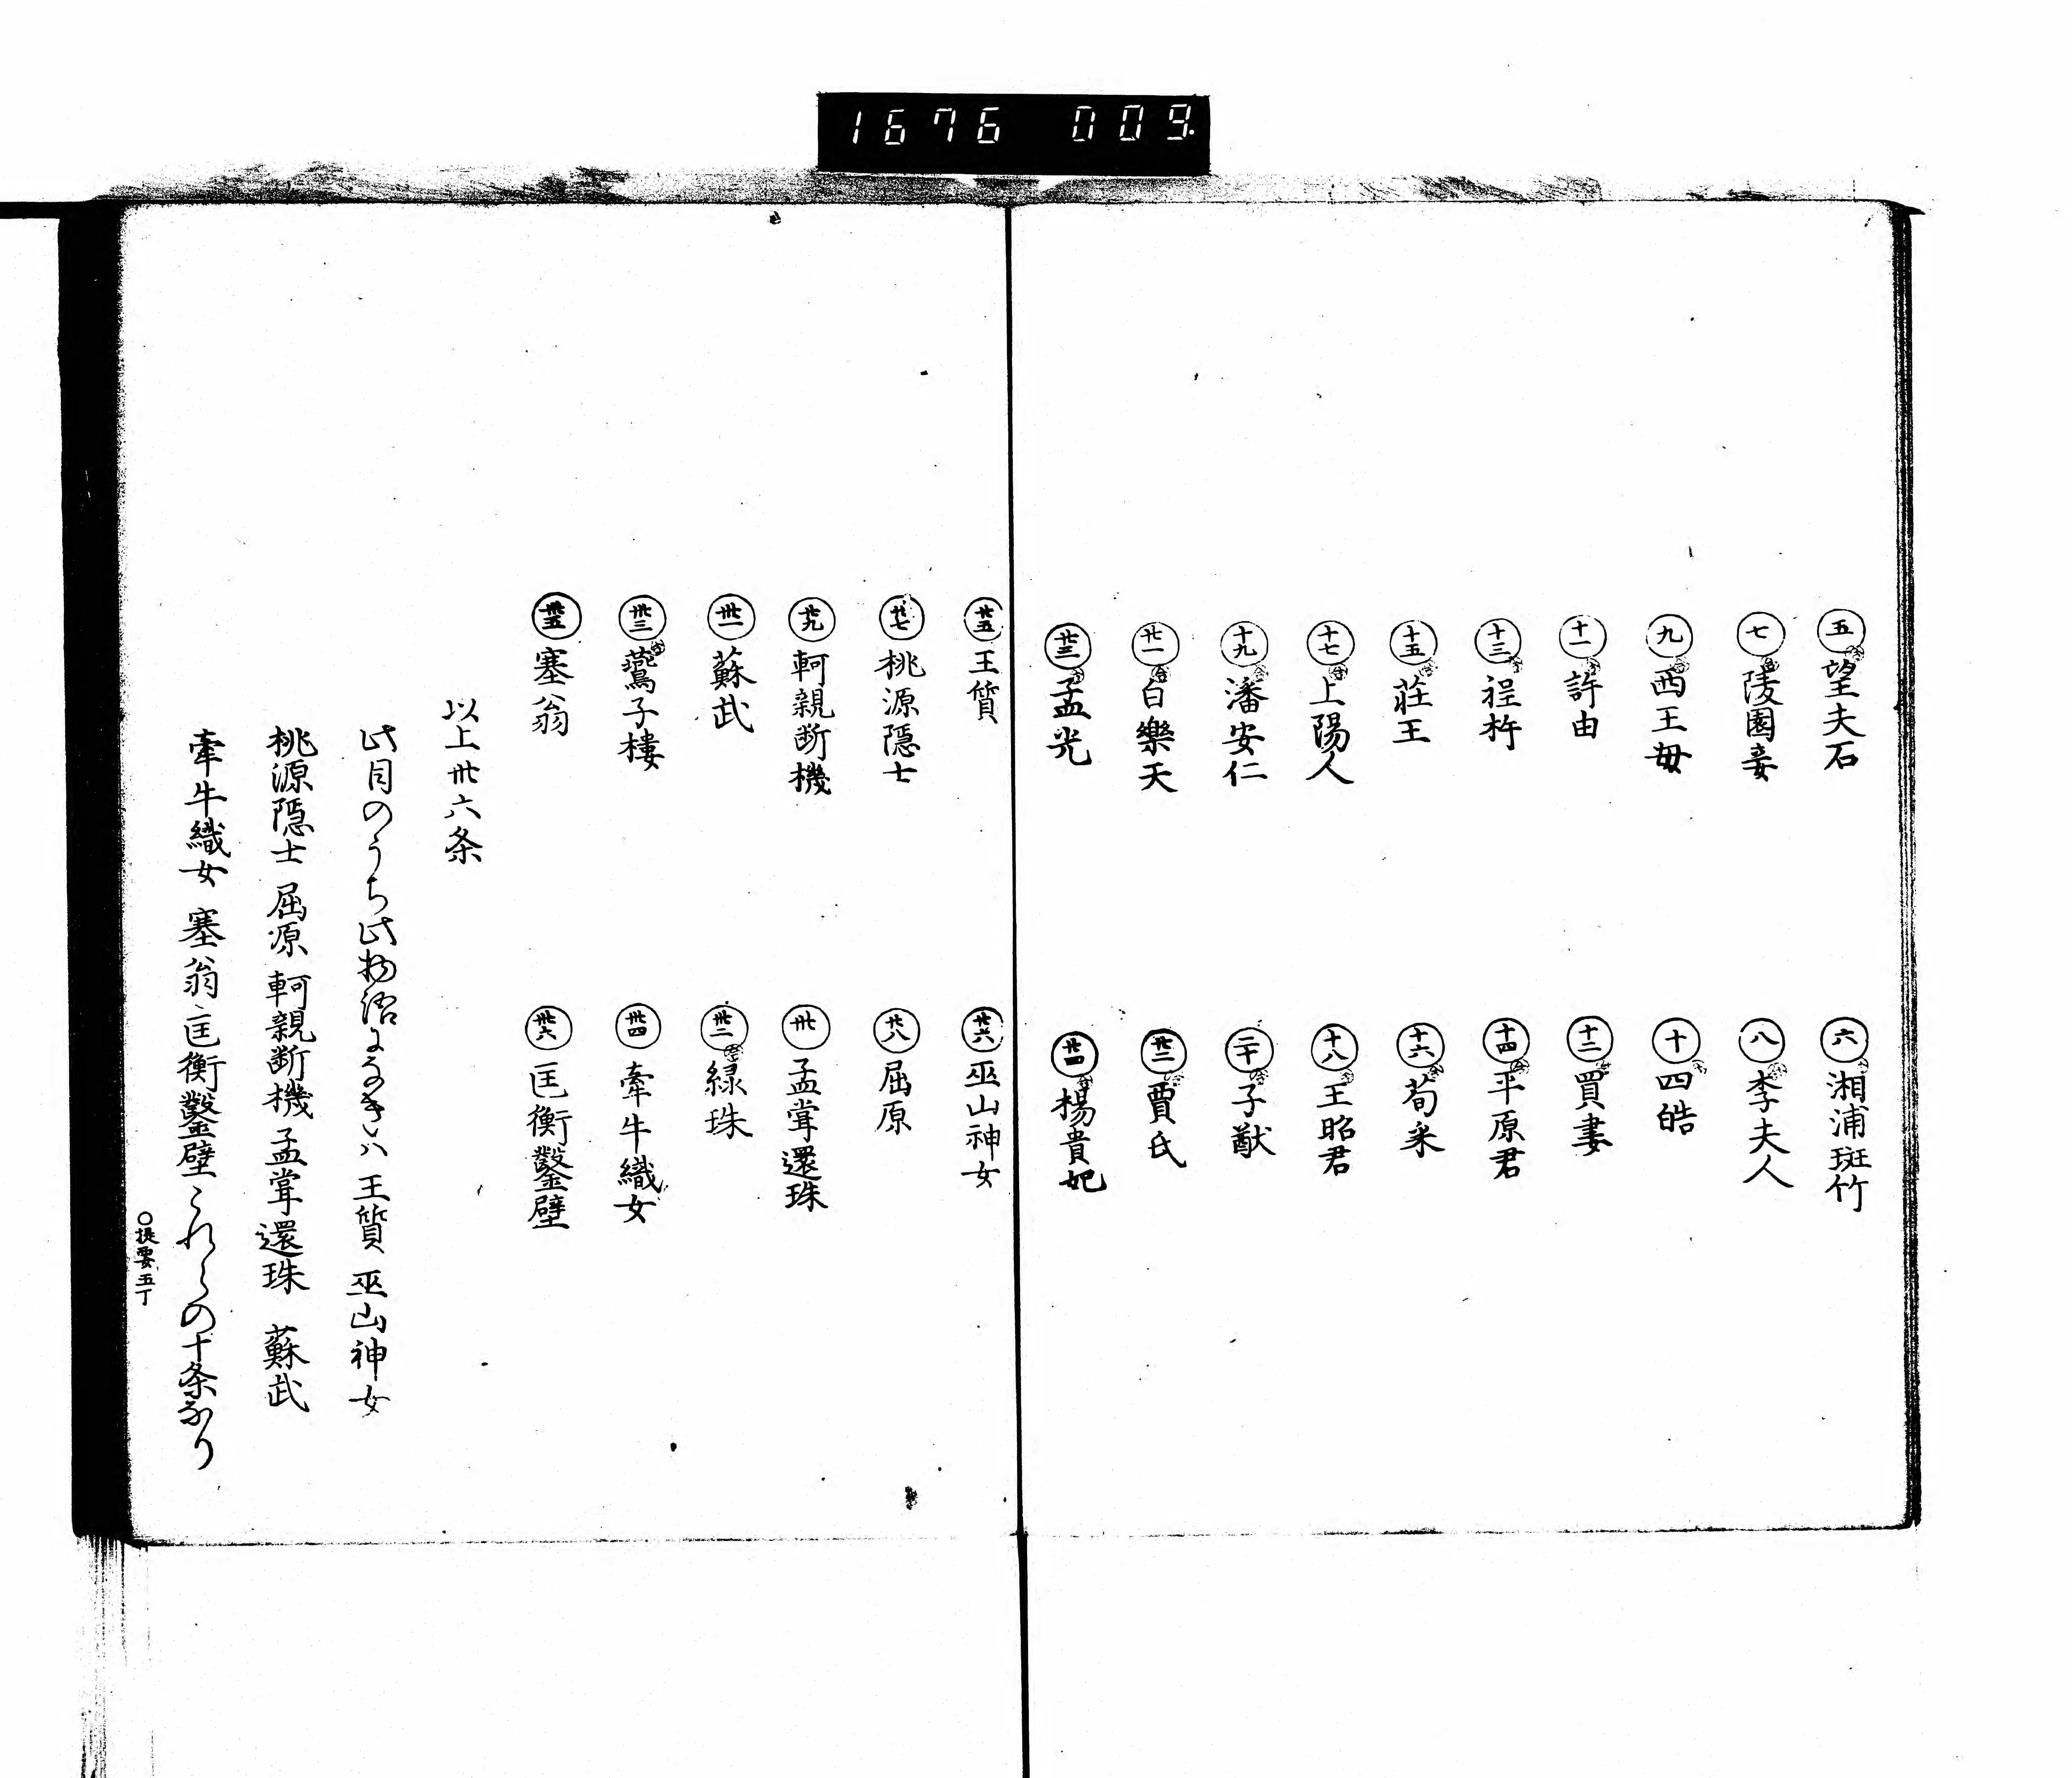 1676 009
五 望夫石
六 湘浦斑竹
七 陵園妾
八 李夫人
九 西王母
十 四皓
十一 許由
十二 買妻
十三 程杵
十四 平原君
十五 莊王
十六 荀采
十七 上陽人
十八 王昭君
十九 潘安仁
二十 子猷
廿一 白樂天
廿二 賈氏
廿三 孟光
廿四 楊貴妃
廿五 王質
廿六 巫山神女
廿七 桃源隱士
廿八 屈原
廿九 軻親断機
卅 孟嘗還珠
卅一 蘇武
卅二 緑珠
卅三 鷰子樓
卅四 牽牛織女
卅五 塞翁
卅六 匡衡鑿壁
以上卅六条
此目のうち此物語になきハ 王質 巫山神女
桃源隱士 屈原 軻親断機 孟嘗還珠 蘇武
牽牛織女 塞翁 匡衡鑿壁 これらの十条なり
○提要五丁